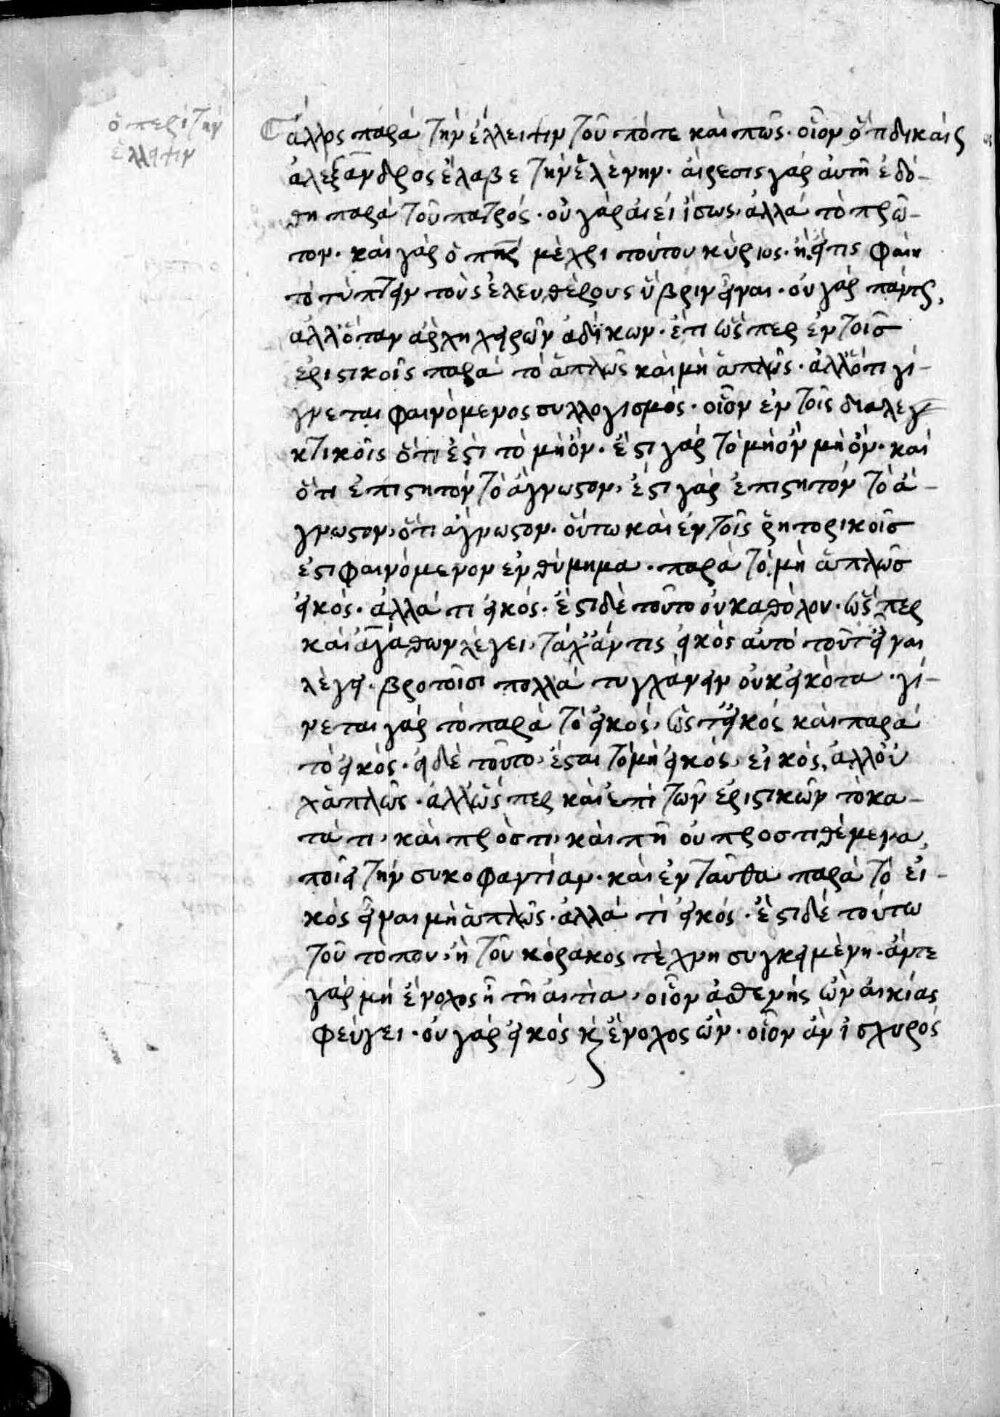 ὁ περὶ τὴν
ἔλλειψιν
ἄλλος παρὰ τὴν ἔλλειψιν τοῦ πότε καὶ πῶς· οἷον ὅτι δικαίως
ἀλέξανδρος ἔλαβε τὴν ἑλένην· αἵρεσις γὰρ αὐτῇ ἐδό-
θη παρὰ τοῦ πατρός· οὐ γὰρ ἀεὶ ἴσως, ἀλλὰ τὸ πρῶ-
τον· καὶ γὰρ ὁ πατὴρ μέχρι τούτου κύριος· ἢ εἴ τις φαίη
τὸ τύπτειν τοὺς ἐλευθέρους ὕβριν εἶναι· οὐ γὰρ πάντως,
ἀλλ' ὅταν ἄρχῃ χειρῶν ἀδίκων· ἔτι ὥσπερ ἐν τοῖς
ἐριστικοῖς παρὰ τὸ ἁπλῶς καὶ μὴ ἁπλῶς· ἀλλ' ὅτι γί-
γνεται φαινόμενος συλλογισμός· οἷον ἐν τοῖς διαλεγ
κτικοῖς ὅτι ἐστὶ τὸ μὴ ὄν· ἔστι γὰρ τὸ μὴ ὂν μὴ ὄν· καὶ
ὅτι ἐπιστητὸν τὸ ἄγνωστον, ἔστι γὰρ ἐπιστητὸν τὸ ἄ-
γνωστον, ὅτι ἄγνωστον· οὕτω καὶ ἐν τοῖς ῥητορικοῖς
ἐστι φαινόμενον ἐνθύμημα· παρὰ τὸ μὴ ἁπλῶς
εἰκός· ἀλλά τι εἰκός· ἔστι δὲ τοῦτο οὐ καθόλου· ὥσπερ
καὶ ἀγάθων λέγει, τάχ' ἄν τις εἰκὸς αὐτὸ τοῦτ' εἶναι
λέγει· βροτοῖσι πολλὰ τυγχάνειν οὐκ εἰκότα· γί-
νεται γὰρ τὸ παρὰ τὸ εἰκός, ὥστ' εἰκὸς καὶ παρὰ
τὸ εἰκός· εἰ δὲ τοῦτο, ἔσται τὸ μὴ εἰκός, εἰκός, ἀλλ' οὐ
χ ἁπλῶς· ἀλλ' ὥσπερ καὶ ἐπὶ τῶν ἐριστικῶν το κα-
τά τι, καὶ πρὸς τι, καὶ πῆ οὐ προστιθέμενα,
ποιεῖ τὴν συκοφαντίαν· καὶ ἐνταῦθα παρὰ τὸ εἰ-
κὸς εἶναι μὴ ἁπλῶς· ἀλλὰ τὶ εἰκός· ἔστι δὲ τούτω
τοῦ τόπου, ἡ τοῦ κόρακος τέχνη συγκειμένη· ἄντε
γὰρ μὴ ἔνοχος ᾖ τῇ αἰτία, οἷον ἀσθενὴς ὢν αἰκίας
φεύγει· οὐ γὰρ εἰκός κἂν ἔνοχος ὤν· οἷον ἂν ἰσχυρὸς